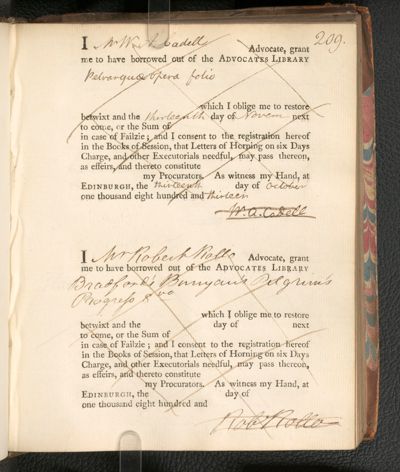 209.
I Mr Wm A Cadell Advocate, grant
me to have borrowed out of the ADVOCATES LIBRARY
Petrarquæ opera folio
which I oblige me to restore
betwixt and the thirteenth day of Novem next
to come, or the Sum of
in case of Failzie; and I consent to the registration hereof
in the Books of Session, that Letters of Horning on six Days
Charge, and other Executorials needful, may pass thereon,
as effeirs, and thereto constitute
my Procurators. As witness my Hand, at
EDINBURGH, the thirteenth day of October
one thousand eight hundred and thirteen
W. A. Cadell
I Mr Robert Rollo Advocate, grant
me to have borrowed out of the ADVOCATES LIBRARY
Bradford's Bunyan's Pilgrim's
Progress 8vo
which I oblige me to restore
betwixt and the day of next
to come, or the Sum of
in case of Failzie; and I consent to the registration hereof
in the Books of Session, that Letters of Horning on six Days
Charge, and other Executorials needful, may pass thereon,
as effeirs, and thereto constitute
my Procurators. As witness my Hand, at
EDINBURGH, the day of
one thousand eight hundred and
Rob Rollo